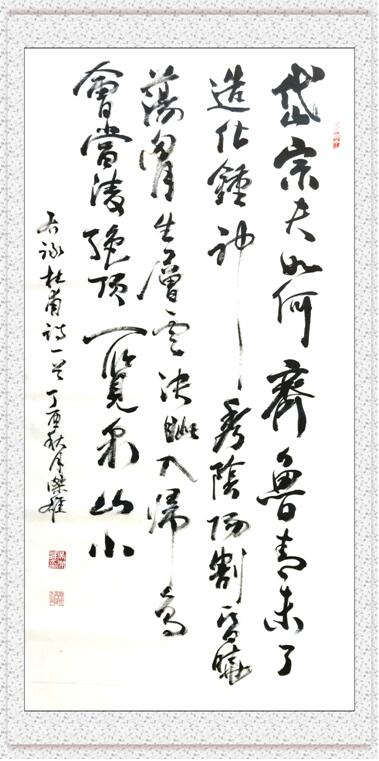 岱宗夫如何齊魯青未了
造化鍾神秀陰陽割昏曉
蕩胸生層雲決眦入歸鳥
會當凌絕頂一覽衆山小
右錄杜甫詩一首丁酉秋月